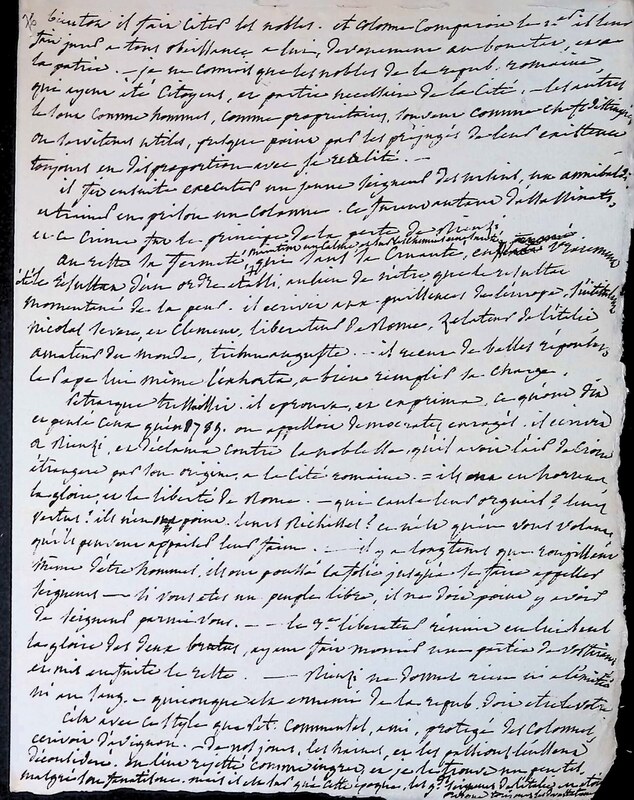 bientot il fait citer les nobles. et colonne comparoit le 1er. il leur
fait jurer a tous obeissance a lui, devouement au bon etat, et a
la patrie. — je ne connois que les nobles de la repub. romaine
qui ayent été citoyens, et partie necessaire de la cité. — les autres
le sont comme hommes, comme proprietaires, souvent comme chefs
ou serviteurs utiles, presque point par les préjugés de leur existence
toujours en disproportion avec sa realité. —
il fit ensuite executer un jeune seigneur des ursins, un annibaldi
et traina en prison un colonne. ce furent autant d'assassinats,
et ce crime fut le principe de la perte de Rienzi.
au reste sa fermeté maintint un calme qui sans la cruauté, vraiment
été le resultat d'un ordre etabli, au lieu de n'etre que le resultat
momentané de la peur. il ecrivit aux puissances de l'europe, s'intitulant
Nicolas severe, et clement, liberateur de Rome, Zelateur de l'italie
amateur du monde, tribun auguste. .. il recut de belles réponses,
le Pape lui même l'exhorta, a bien remplir sa charge.
Petrarque tressaillit. il eprouva, et exprima, ce qu'ont dit
et pensé ceux qu'en 1789. on appelloit democrates enragés. il ecrivit
a Rienzi, et déclama contre la noblesse, qu'il avoit l'air de croire
étrangere par son origine, a la cité romaine. = ils ont en horreur
la gloire, et la liberté de Rome. — qui cause leur orgueil? leurs
vertus? ils n'en ont point. leurs Richesses? ce n'est qu'en vous volant
qu'ils peuvent appaiser leur faim. — il y a longtems que rougissant
même d'être hommes, ils ont poussé la folie jusqu'a se faire appeller
seigneurs — si vous etes un peuple libre, il ne doit point y avoir
de seigneurs parmi vous. — — le 3e. liberateur réunit en lui seul
la gloire des deux brutes, ayant fait mourir une partie de vos tirans
et mis en fuite le reste. — Rienzi ne donnez rien ni a l'amitié
ni au sang. — quiconque est ennemi de la repub. doit etre le votre
C'est avec ce style que Pet. commensal, ami, protegé des Colonnes,
ecrivoit d'avignon. — De nos jours, les haines, et les passions l'eussent
déconsideré. on l'eut rejetté comme ingrat, et je le trouve
malgré son fanatisme. mais il est clair qu'a cette epoque, les gds. seigneurs de l'italie